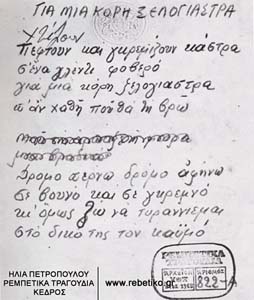 ΓΙΑ ΜΙΑ ΚΟΡΗ ΞΕΛΟΓΙΑΣΤΡΑ
Χτίζουν
Πέφτουν και γκρεμίζουν κάστρα
σ' ένα γλέντι φοβερό
για μιά κόρη ξελογιάστρα
π' άν χαθή πού θά τη βρω
Δρόμο περνώ δρόμο αφήνω
σε βουνό και σε γκρεμνό
κι' όμως ζω να τυραννιέμαι
στο δικό της τον καϋμό
ΡΕΜΠΕΤΙΚΑ
ΤΡΑΓΟΥΔΙΑ
ΑΡΧΕΙΟΝ
ΑΡΙΘΜΟΣ
822-Α
ΗΛΙΑ ΠΕΤΡΟΠΟΥΛΟΥ
ΡΕΜΠΕΤΙΚΑ ΤΡΑΓΟΥΔΙΑ
ΚΕΔΡΟΣ
www.rebetiko.gr